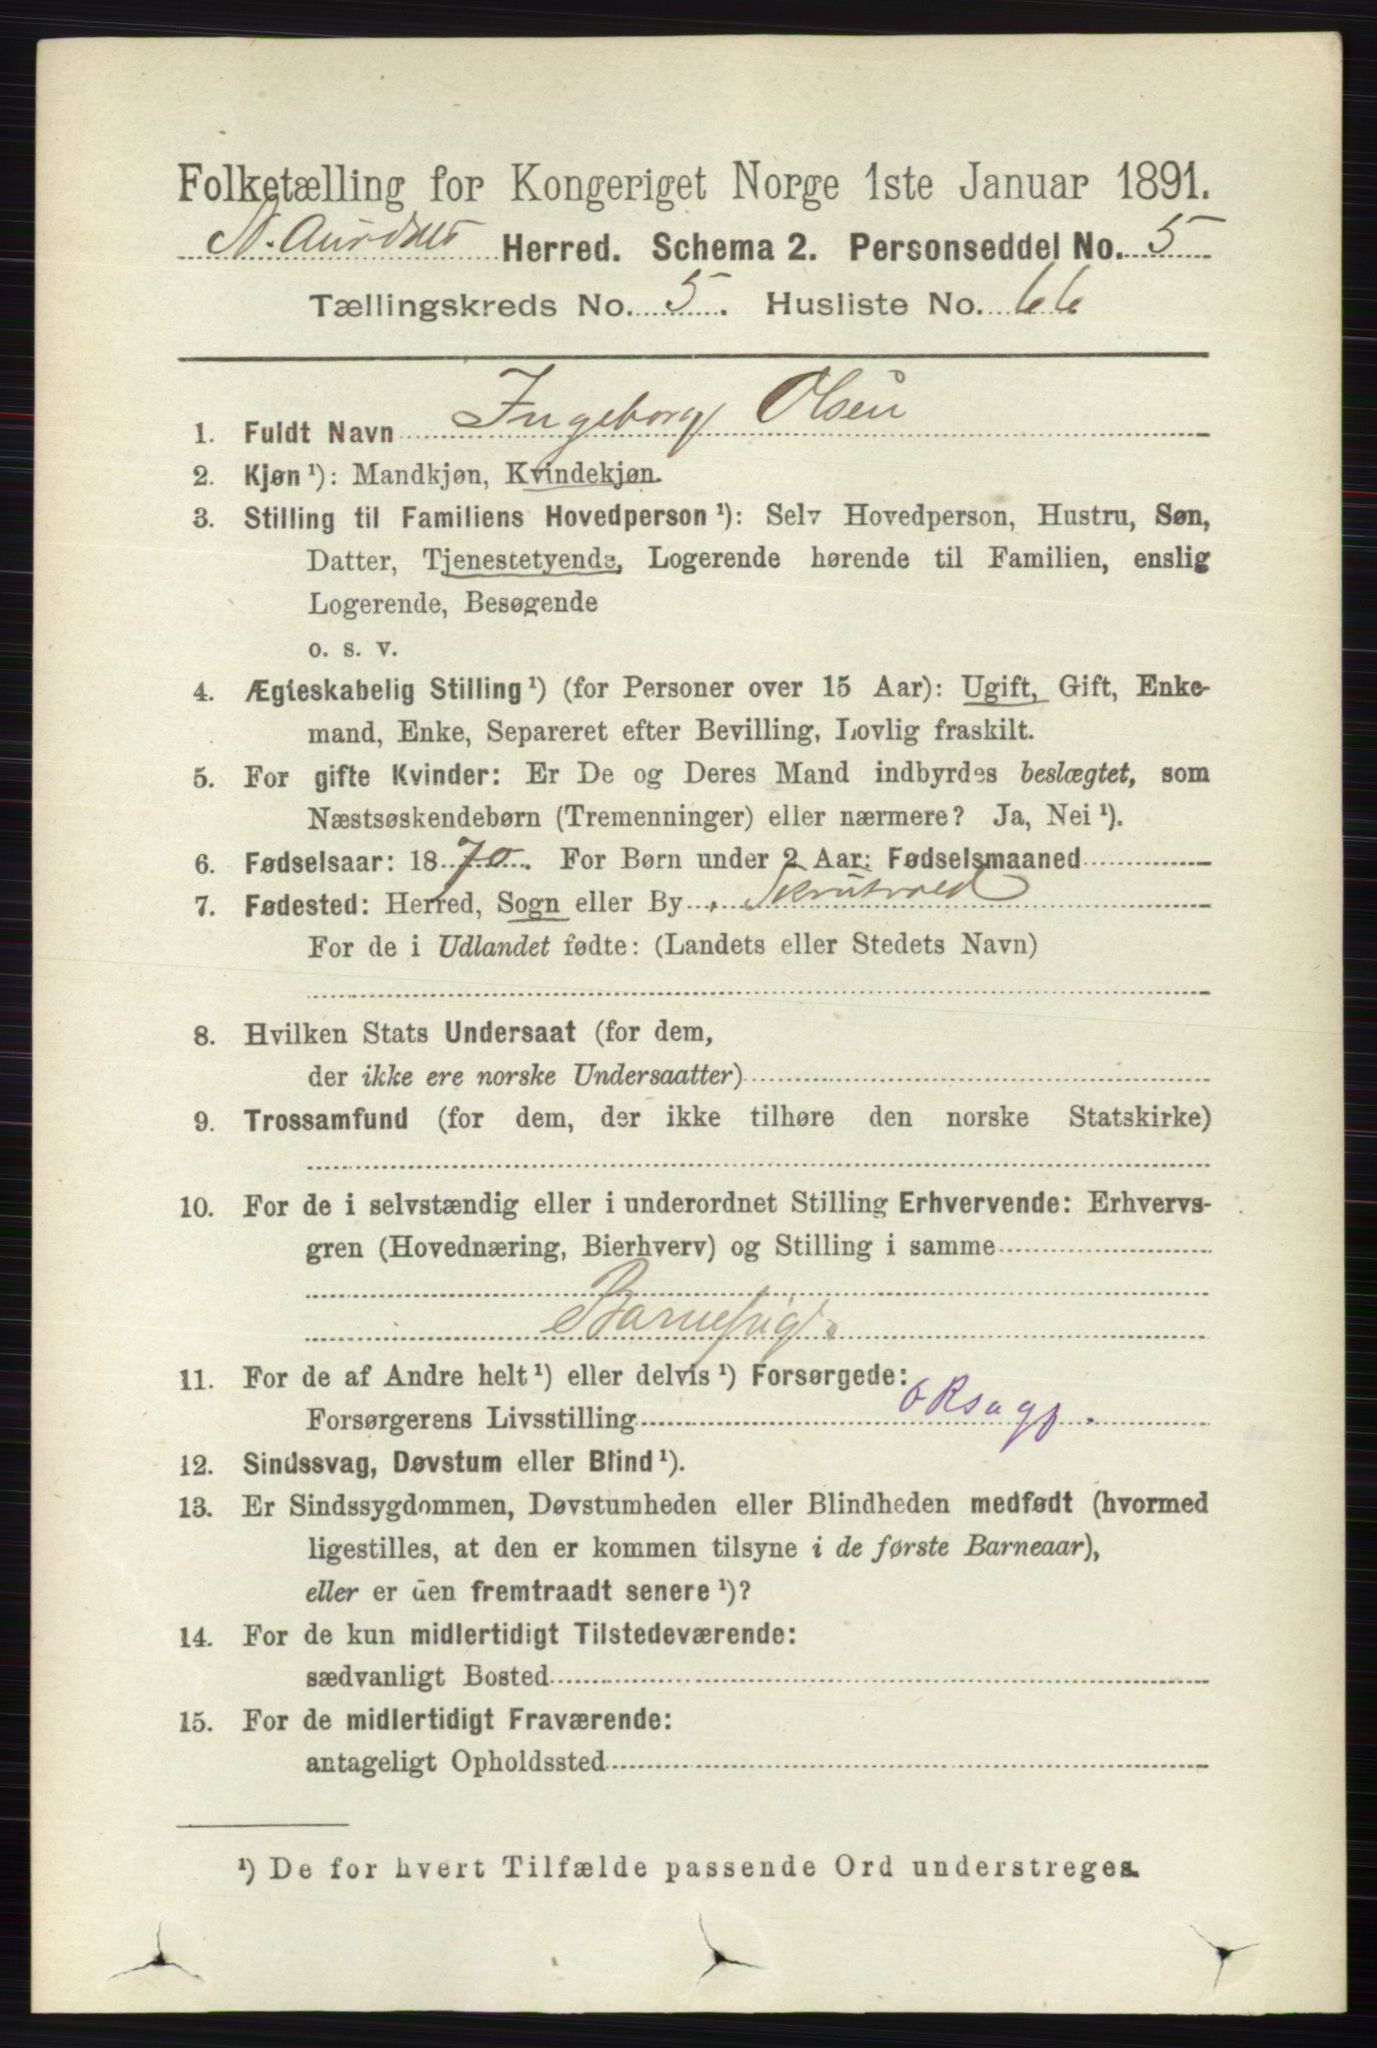 Folketælling for Kongeriget Norge 1ste Januar 1891.
N. Aurdals Herred. Schema 2. Personseddel No. 5
Tællingskreds No. 5. Husliste No. 66
1. Fuldt Navn Ingeborg Olsen
2. Kjøn ¹): Mandkjøn, Kvindekjøn.
3. Stilling til Familiens Hovedperson ¹): Selv Hovedperson, Hustru, Søn,
Datter, Tjenestetyende, Logerende hørende til Familien, enslig
Logerende, Besøgende
o. s. v.
4. Ægteskabelig Stilling ¹) (for Personer over 15 Aar): Ugift, Gift, Enke-
mand, Enke, Separeret efter Bevilling, Lovlig fraskilt.
5. For gifte Kvinder: Er De og Deres Mand indbyrdes beslægtet, som
Næstsøskendebørn (Tremenninger) eller nærmere? Ja, Nei ¹).
6. Fødselsaar: 1870. For Børn under 2 Aar: Fødselsmaaned
7. Fødested: Herred, Sogn eller By Skrutvold
For de i Udlandet fødte: (Landets eller Stedets Navn)
8. Hvilken Stats Undersaat (for dem,
der ikke ere norske Undersaatter)
9. Trossamfund (for dem, der ikke tilhøre den norske Statskirke)
10. For de i selvstændig eller i underordnet Stilling Erhvervende: Erhvervs-
gren (Hovednæring, Bierhverv) og Stilling i samme
Barnepige
11. For de af Andre helt ¹) eller delvis ¹) Forsørgede:
Forsørgerens Livsstilling
12. Sindssvag, Døvstum eller Blind ¹).
13. Er Sindssygdommen, Døvstumheden eller Blindheden medfødt (hvormed
ligestilles, at den er kommen tilsyne i de første Barneaar),
eller er den fremtraadt senere ¹)?
14. For de kun midlertidigt Tilstedeværende:
sædvanligt Bosted
15. For de midlertidigt Fraværende:
antageligt Opholdssted
¹) De for hvert Tilfælde passende Ord understreges.